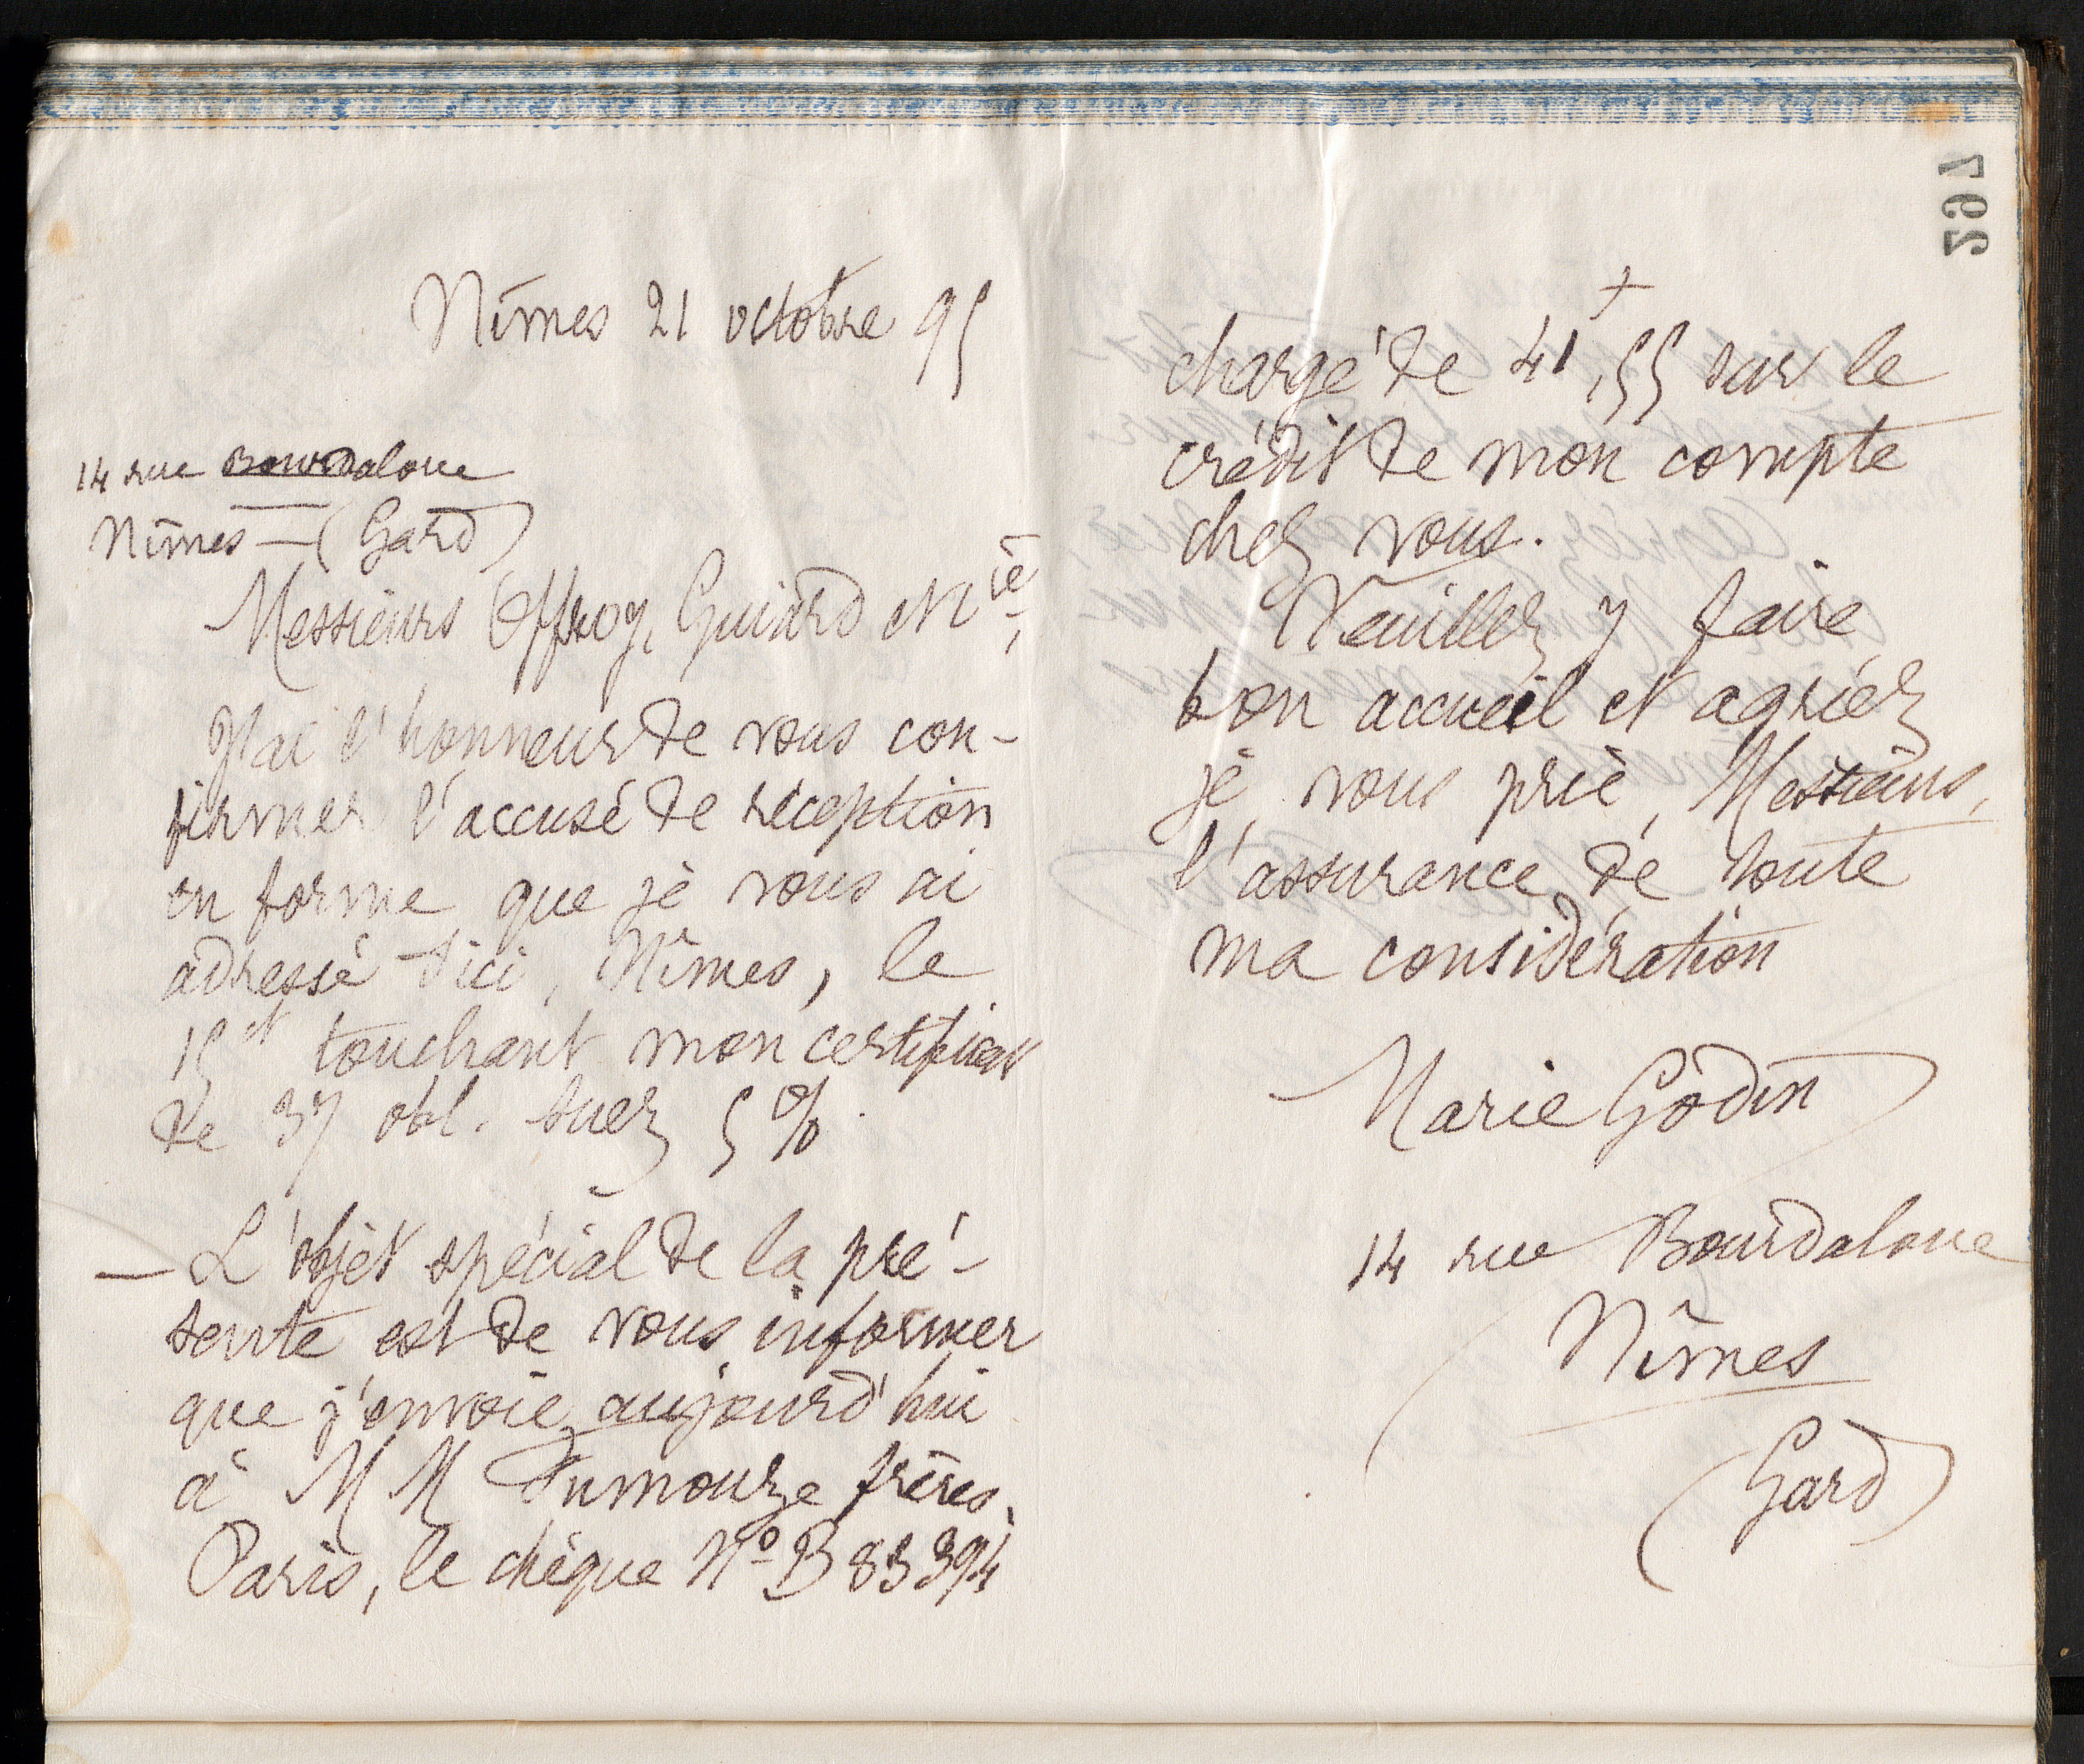 Nîmes 21 octobre 95
14 rue Bourdaloue
Nîmes — (Gard)
Messieurs Offroy, Guiard et Cie,
J'ai l'honneur de vous con-
firmer l'accusé de réception
en forme que je vous ai
adressé d'ici, Nîmes, le
15 ct touchant mon certificat
de 37 obl. Suez 5 %.
— L'objet spécial de la pré-
sente est de vous informer
que j'envoie aujourd'hui
à MM Dumouze frères,
Paris, le chèque No B 83394
297
chargé de 41f,55 sur le
crédit de mon compte
chez vous.
Veuillez y faire
bon accueil et agréer
je vous prie, Messieurs,
l'assurance de toute
ma considération
Marie Godin
14 rue Bourdaloue
Nîmes
(Gard)